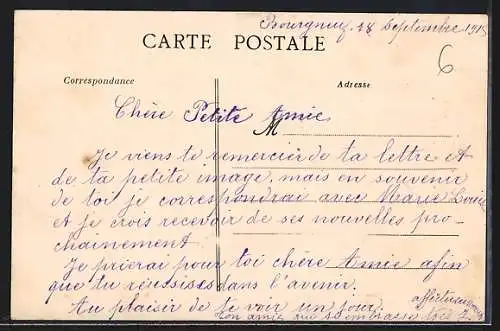 Bourgneuf. 18 Septembre 1915
CARTE POSTALE
6
Correspondance
Adresse
Chère Petite Amie
M
Je viens te remercier de ta lettre et
de ta petite image, mais en souvenir
de toi je correspondrai avec Marie Louise
et je crois recevoir de ses nouvelles pro-
chainement
Je prierai pour toi chère Amie afin
que tu réussisses dans l'avenir.
Au plaisir de te voir un jour.
affectueusement
ton amie qui t'embrasse